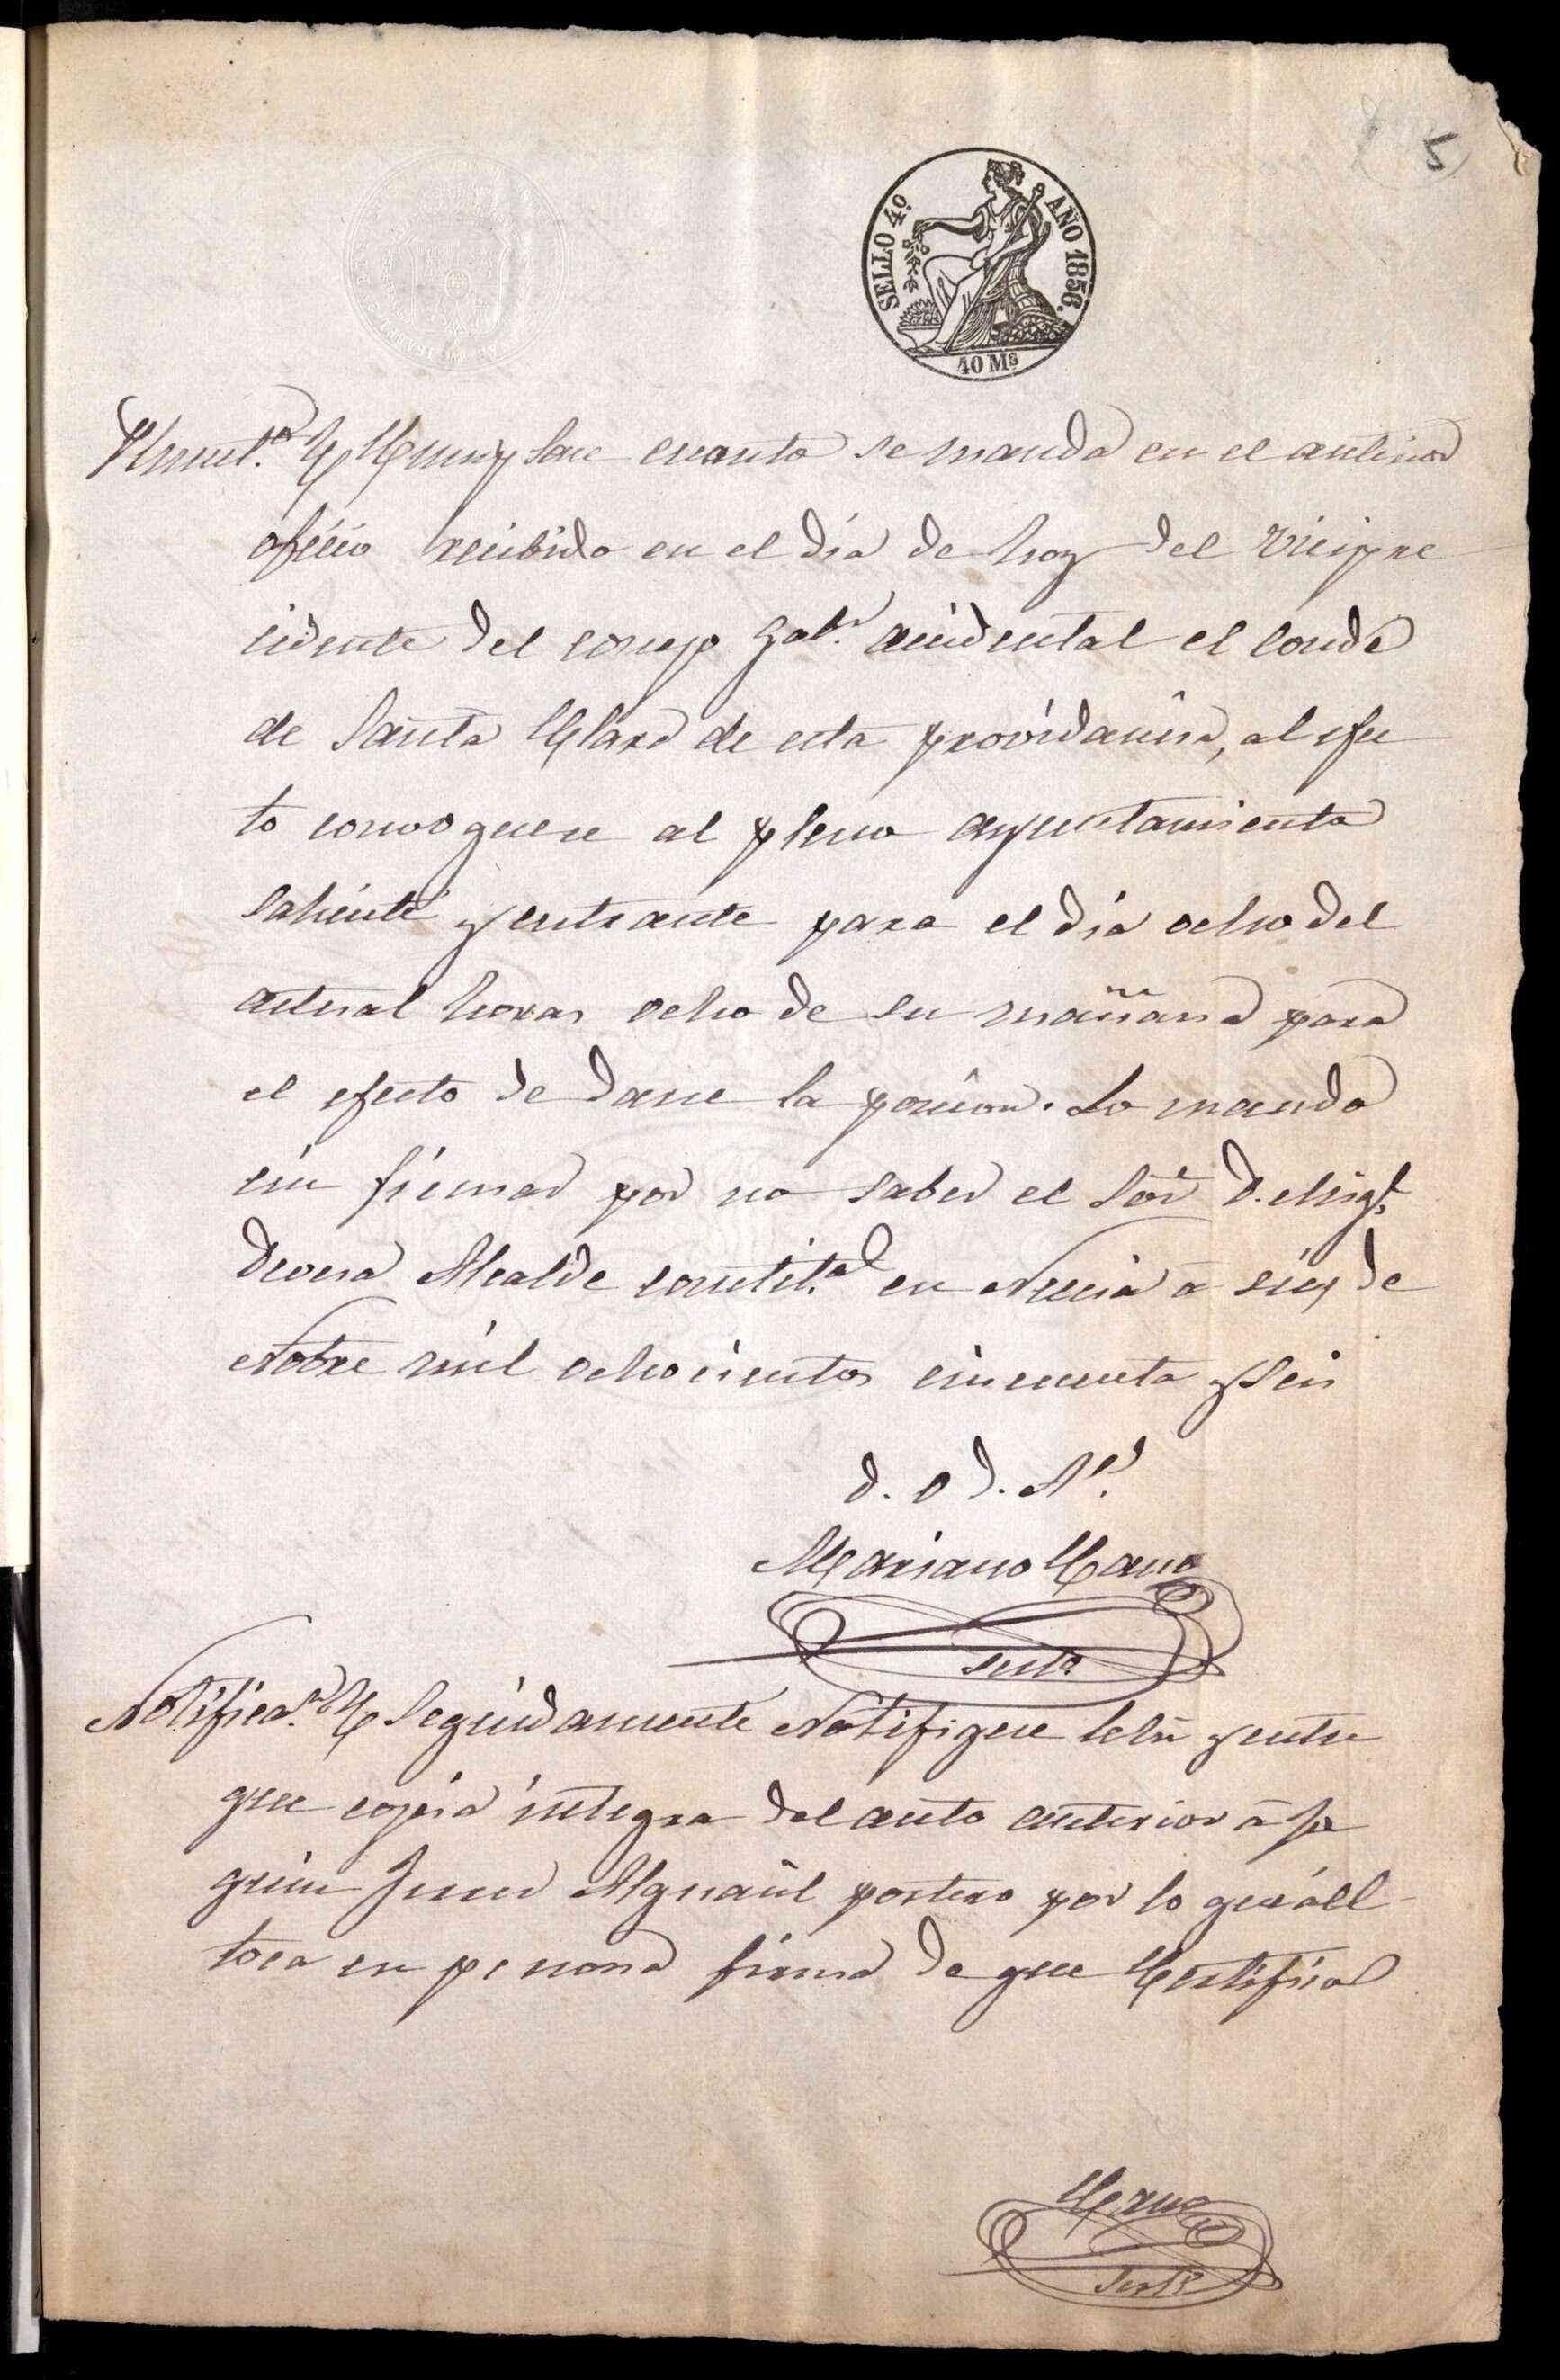 5
SELLO 4º. AÑO 1856.
40 Ms
cuanto se manda en el anterior
oficio recibido en el dia de hoy del Vicipre
cidente del consejo Gobr. accidental el conde
de Santa Clara de esta providancia, al efec
to convoquese al pleno ayuntamiento
saliente y entrante para el dia ocho del
actual horas ocho de su mañana para
el efecto de darse la pocicion. Lo mando
cin firmar por no saber el Sor D. Migl.
Devesa Alcalde constit.al en Nucia a seis de
Nobre mil ochocientos cincuenta y Seis
D. O D. Ad.
Mariano Cano
Srio
Notificaon. Seguidamente Notifique lehi y entre
gue copia integra del auto anterior a Jo
quin Alguacil portero por lo que a él
toca en persona firma de que Certifico
Cano
Srio